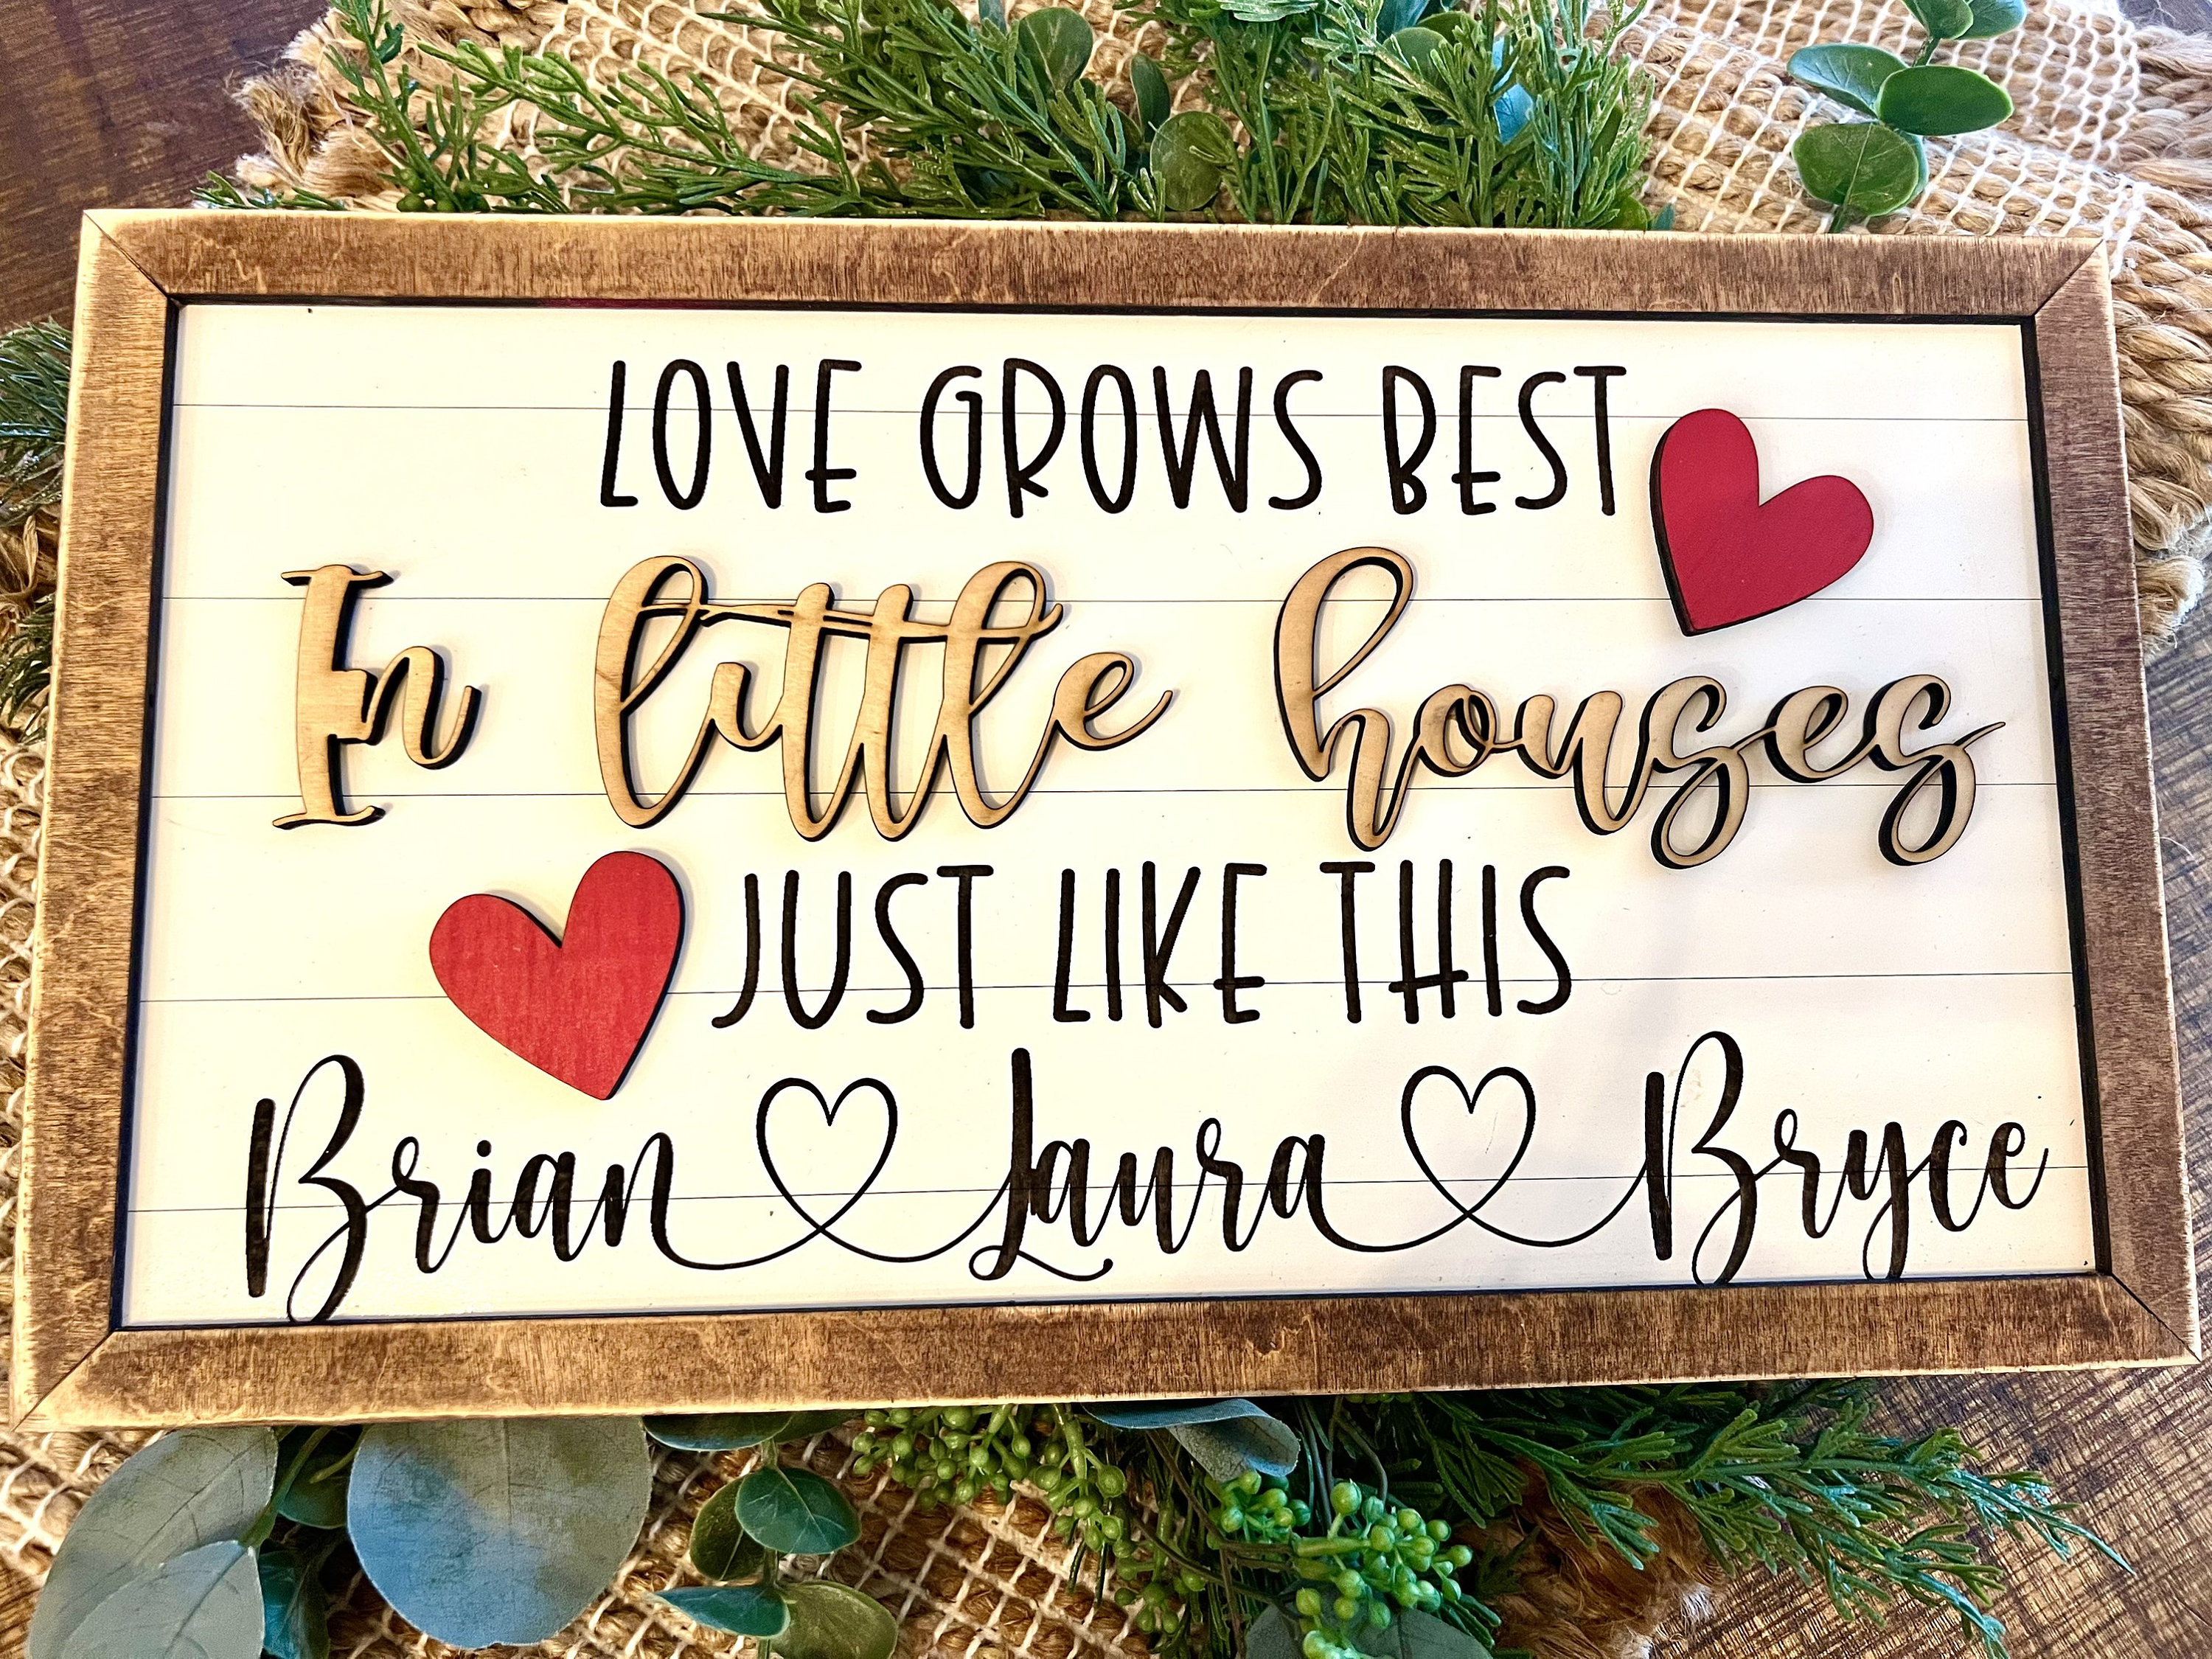 LOVE GROWS BEST
In little houses
JUST LIKE THIS
Brian Laura Bryce